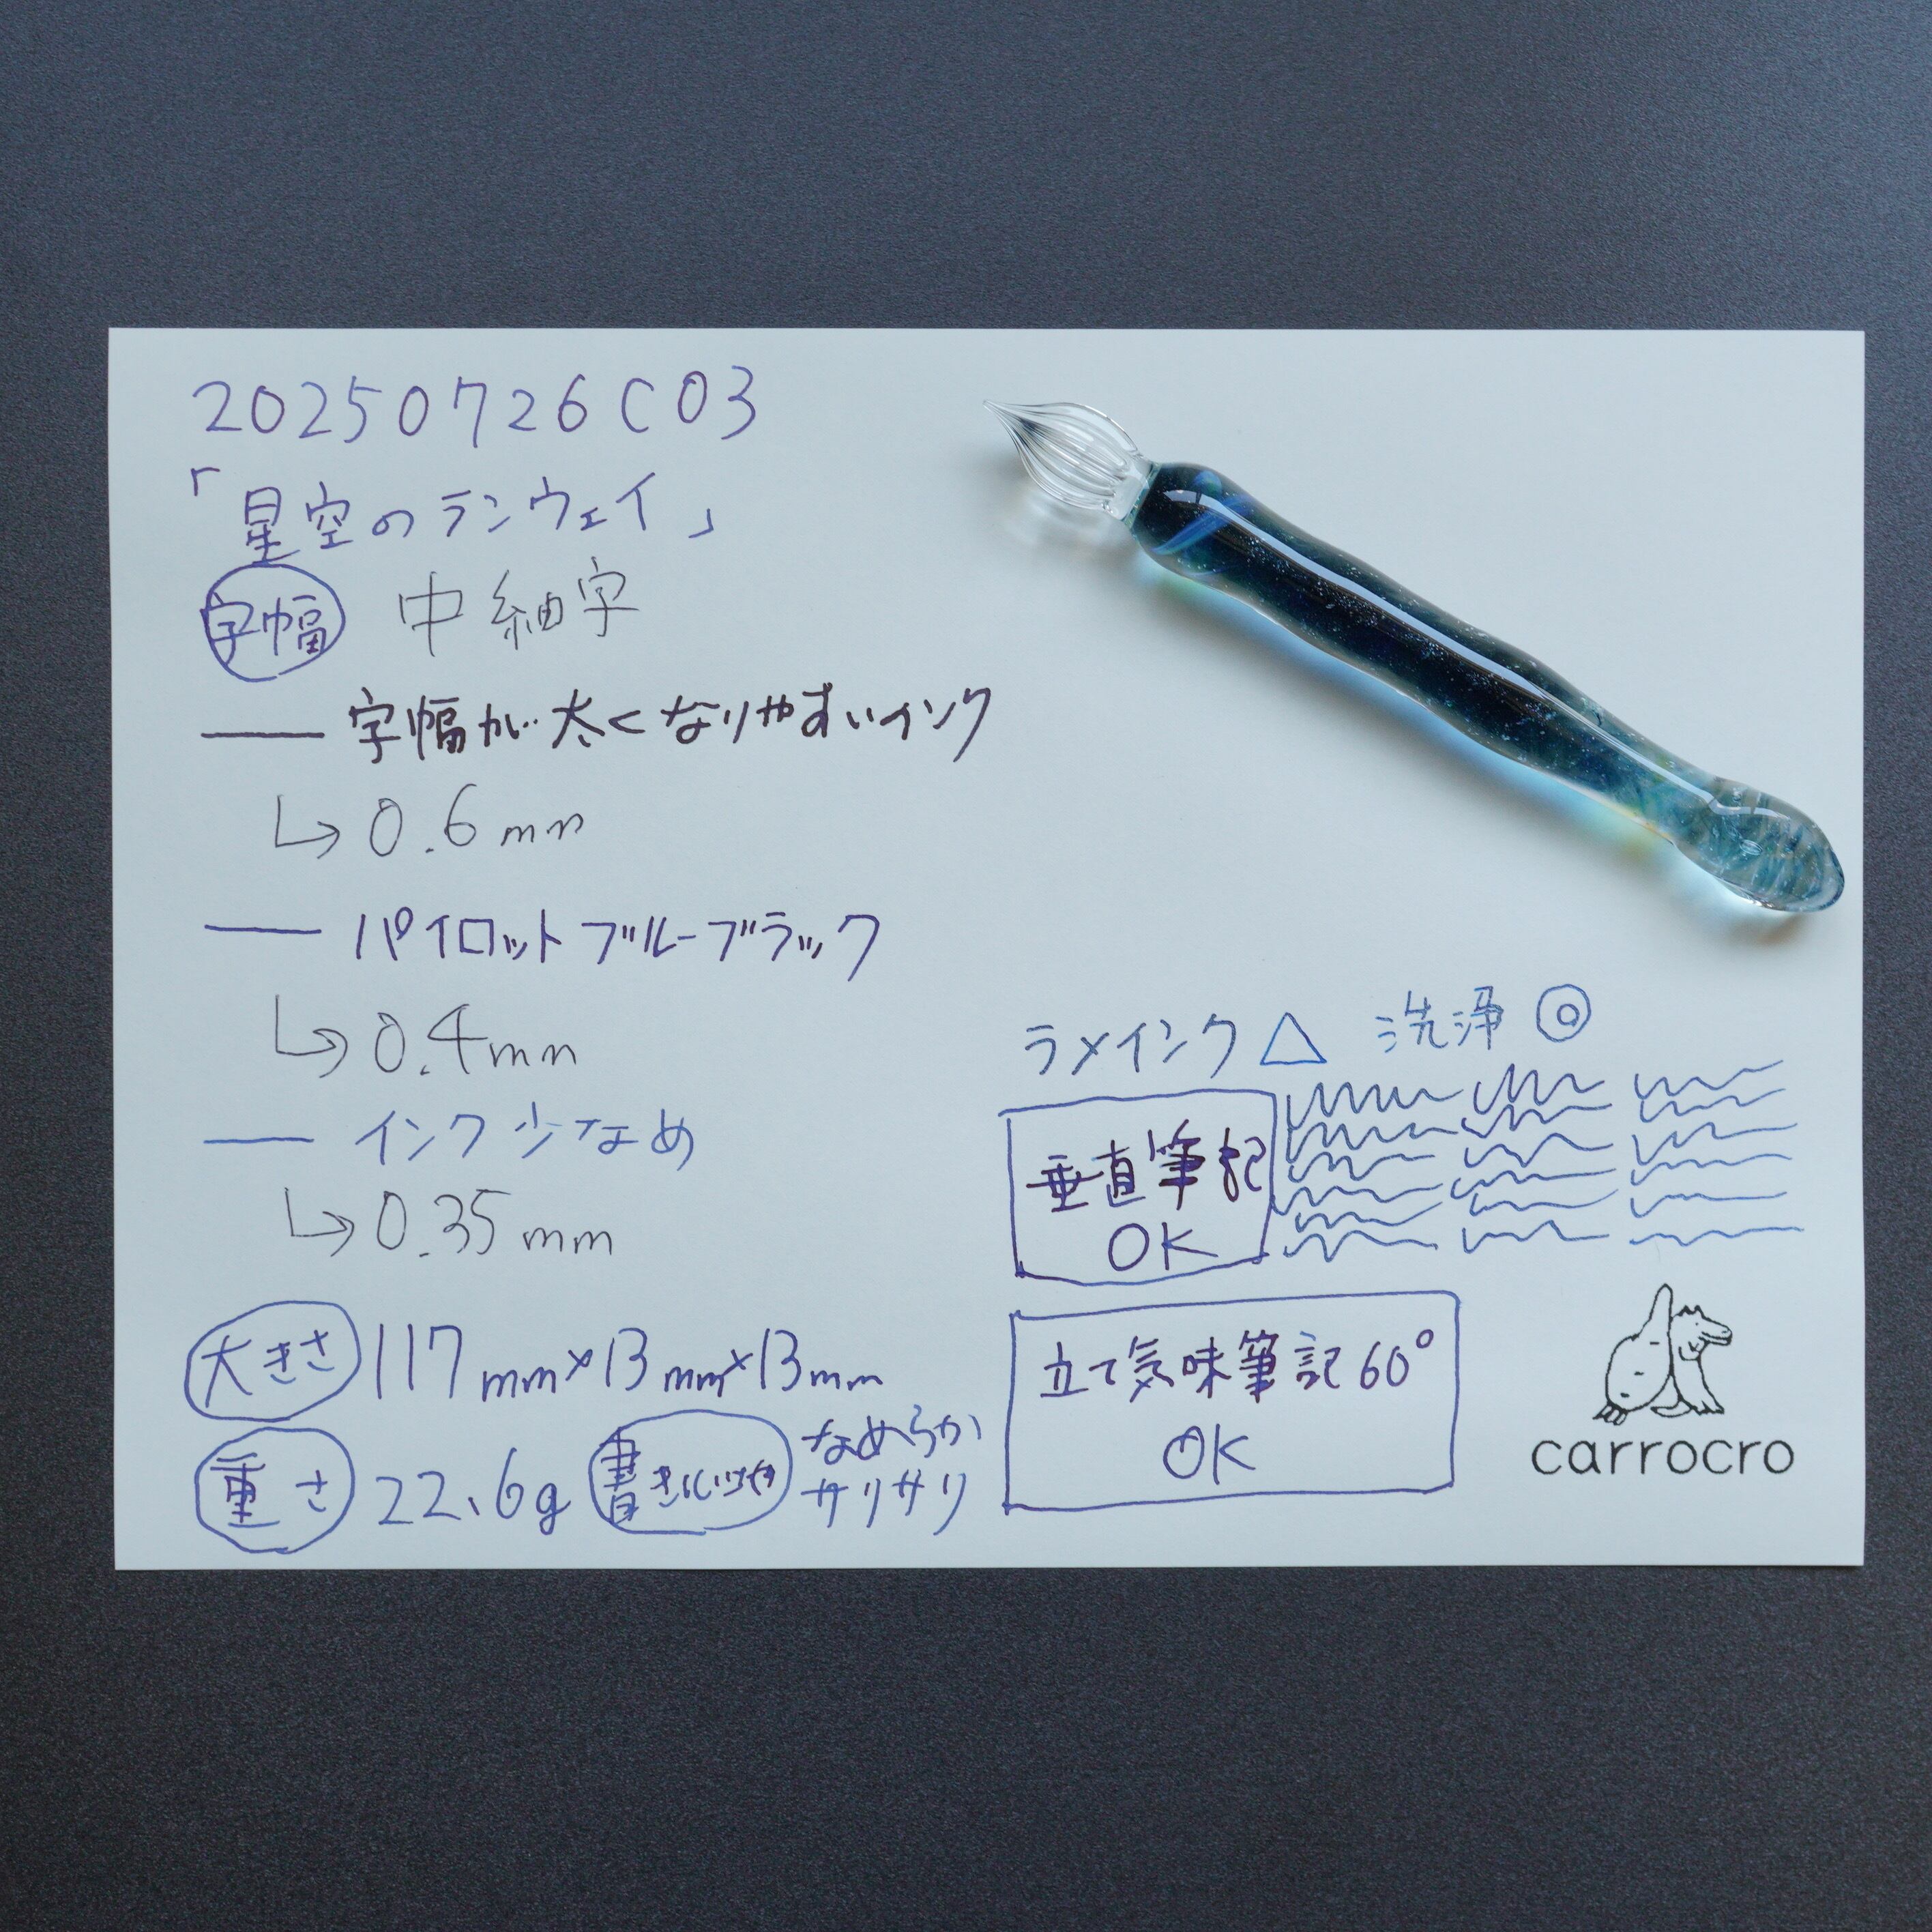 20250726C03
「星空のランウェイ」
字幅 中細字
字幅が太くなりやすいインク
↳0.6mm
パイロットブルーブラック
↳0.4mm
インク少なめ
↳0.35mm
大きさ 117mm×13mm×13mm
重さ 22.6g 書き心地 なめらか
サリサリ
ラメインク △ 洗浄 ◎
垂直筆記
OK
立て気味筆記60°
OK
carrocro